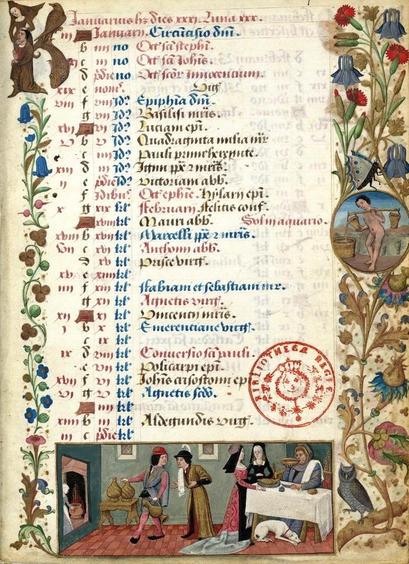 Januarius hz dies xxxj. Luna xxx.
iij Januarij. Circũcisio dñi.
b iiij no Oct̃ sci stephi.
xi c iij no Oct̃ sci Johis.
d p̃die no Oct̃ scõr innocentum.
xix e nonᵉ. Virg̃
viij f viij Jdᵒ Epiphia dñi.
g vij Jdᵒ Basilisi mr̃is.
xvj vj Jdᵒ Luciani ep̃i.
v b v Jdᵒ Quadraginta milia mr̃
c iiij Jdᵒ Pauli primi
xiij d iij Jdᵒ Igini p̃p̃e z mr̃is.
ij e p̃die Jdᵒ Victoriani abb.
f Jdibᵒ Oct̃ ephie. Hylarij ep̃i.
x g xix kl̃ ffebruarij. ffelicis conf.
xviij kl̃ Mauri abb. Sol in aquario.
xviij b xvij kl̃ Marcelli p̃p̃e z mr̃is.
vij c xvj kl̃ Anthonij abb.
d xv kl̃ Prisce virg̃.
xv e xiiij kl̃
iiij f xiij kl̃ ffabiani et sebastiani mr̃.
g xij kl̃ Agnetis virg̃.
xij xj kl̃ Vincentij mr̃is.
i b x kl̃ Emerentiane virg̃.
c ix kl̃
ix d viij kl̃ Conversio sci pauli.
e vij kl̃ Policarpi ep̃i.
xvij f vj kl̃ Johis crisostomi ep̃i
vi g v kl̃ Agnetis scdõ.
iiij kl̃
xiiij b iij kl̃ Aldegundis virg̃.
iij c p̃die kl̃
BIBLIOTHECA REGIE